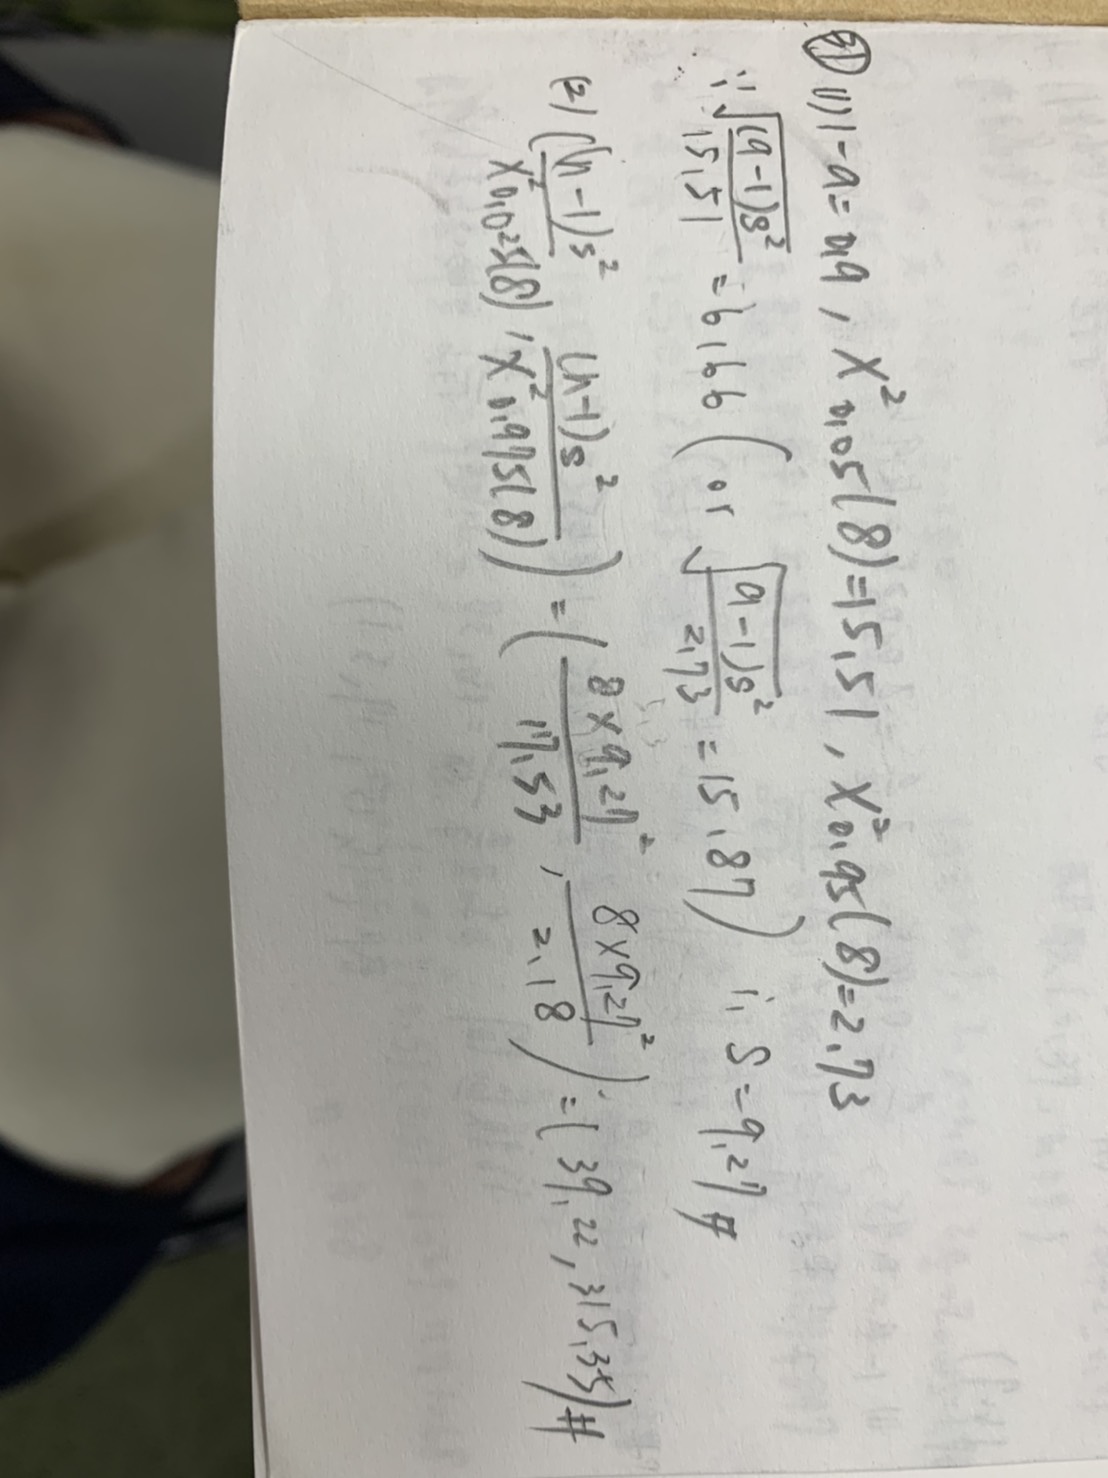 31 (1) 1-α=0.9, χ²0.05(8)=15.51, χ²0.95(8)=2.73
∵ √((9-1)s²/15.51) = 6.66 (or √((9-1)s²/2.73) = 15.87) ∴ S=9.27#
(2) ((n-1)s²/χ²0.025(8), (n-1)s²/χ²0.975(8)) = (8×9.27²/17.53, 8×9.27²/2.18) = (39.22, 315.35)#